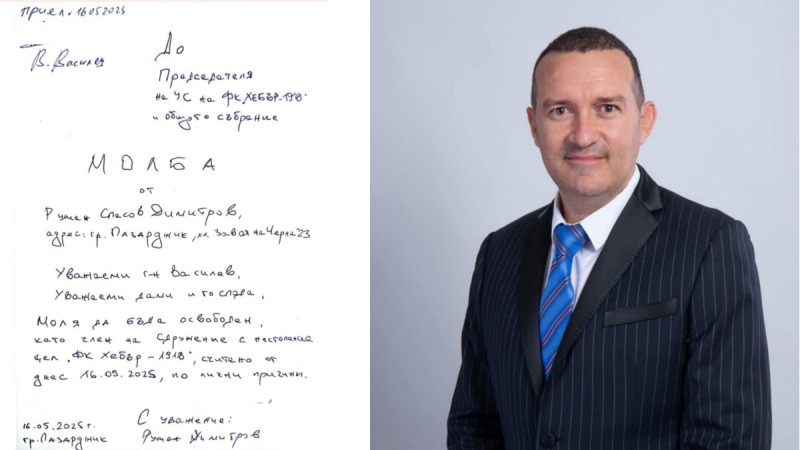 Приел. 16.05.2025
В. Василев
До
Председателя
на УС на ФК „ХЕБЪР-1918"
и общото събрание
МОЛБА
от
Румен Спасов Димитров,
адрес: гр. Пазарджик,
Уважаеми г-н Василев,
Уважаеми дами и господа,
Моля да бъда освободен,
като член на Сдружение с нестопанска
цел „ФК Хебър - 1918", считано от
днес 16.05.2025, по лични причини.
16.05.2025 г.
гр. Пазарджик
С уважение:
Румен Димитров